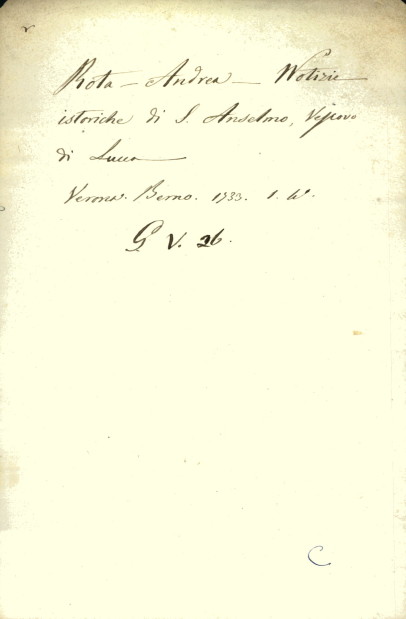 Rota - Andrea - Notizie
istoriche di S. Anselmo, Vescovo
di Lucca
Verona. Berno. 1733. 1. 4°.
G V. 26.
C